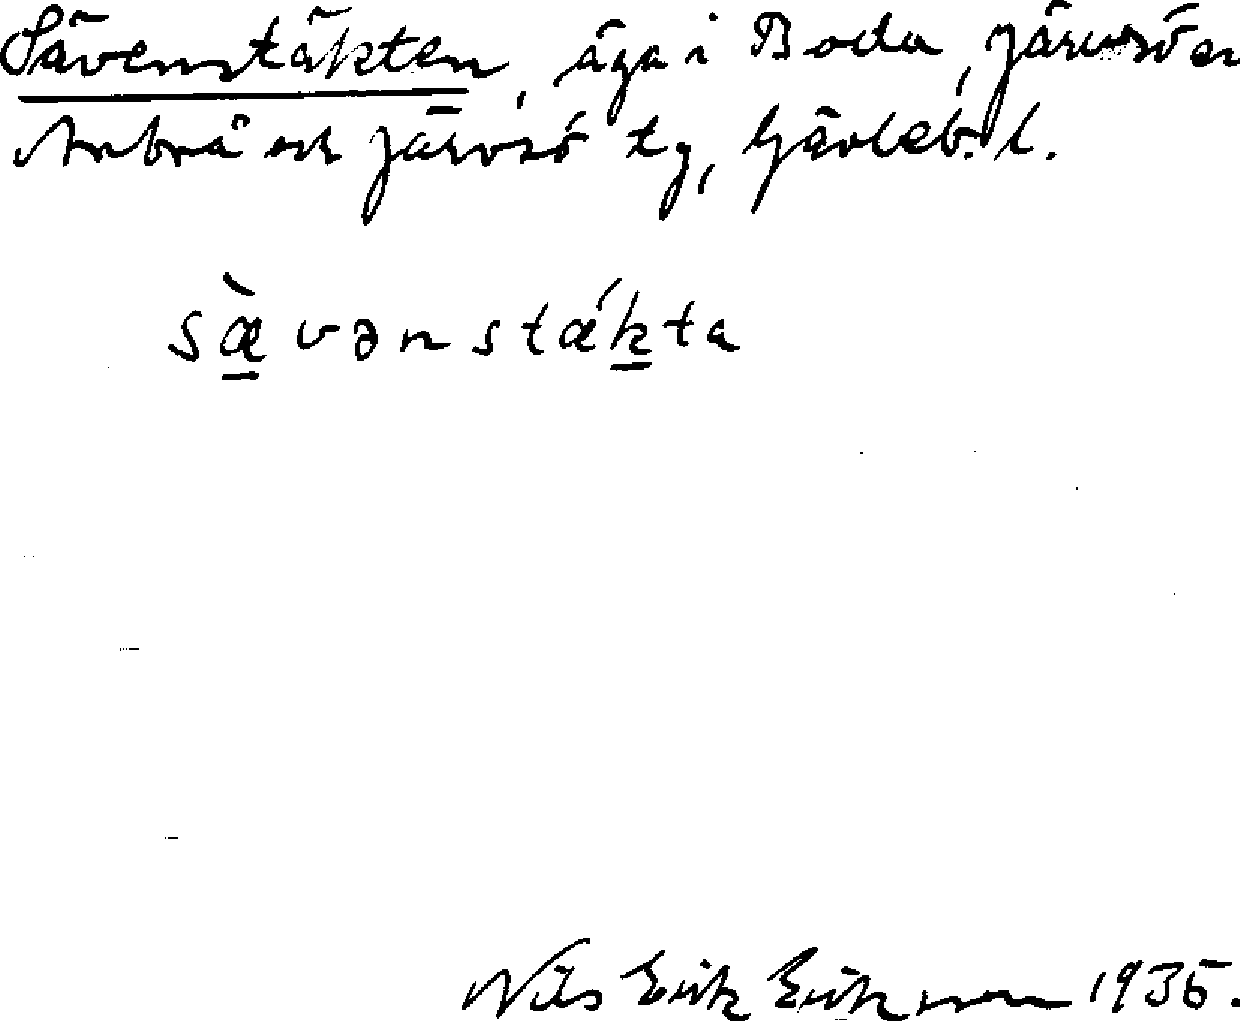 Sävenstäkten, äga i Boda, Järvsö sn
Arbrå och Järvsö tg, Gävleb. l.
sæ̀vənstǽkta
Nils Erik Eriksson 1935.